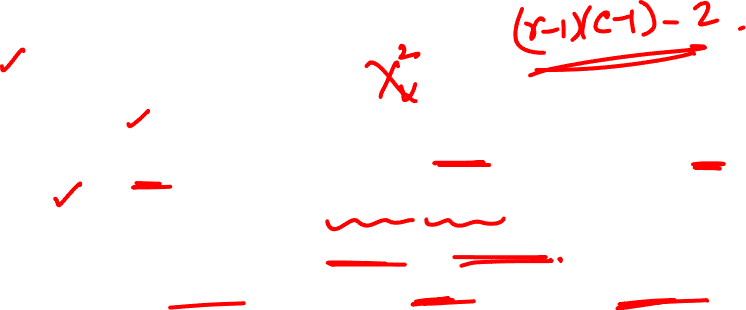 (r-1)(c-1) - 2.
χ²